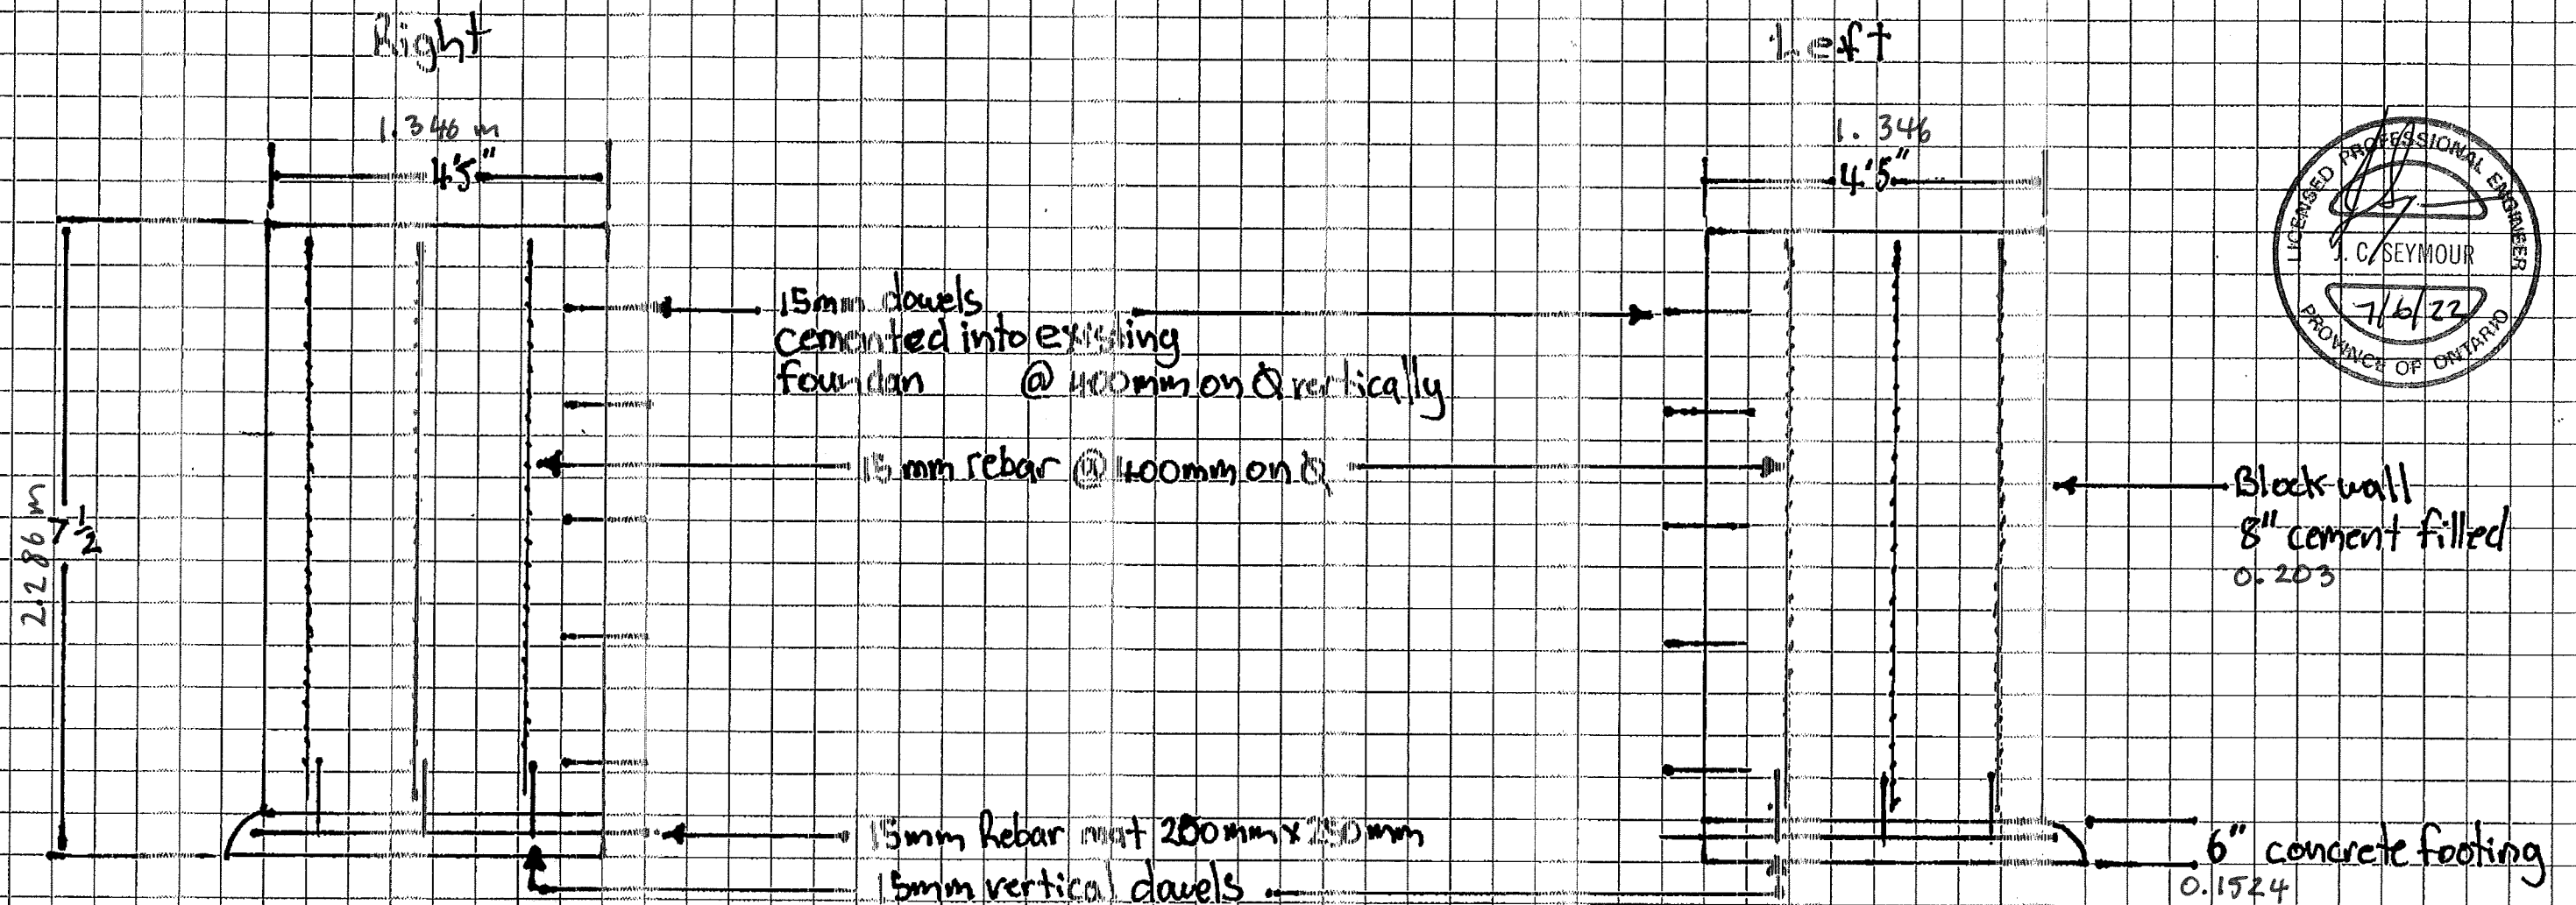 Right
Left
1.346 m
4'5"
1. 346
4'5"
LICENSED PROFESSIONAL ENGINEER
J. C. SEYMOUR
7/6/22
PROVINCE OF ONTARIO
15mm dowels
cemented into existing
foundan @ 400mm on ℄ vertically
15 mm rebar @ 400mm on ℄
2.286 m
7 1/2
Block wall
8" cement filled
0.203
15mm Rebar mat 250mm x 250mm
15mm vertical dowels
6" concrete footing
0.1524